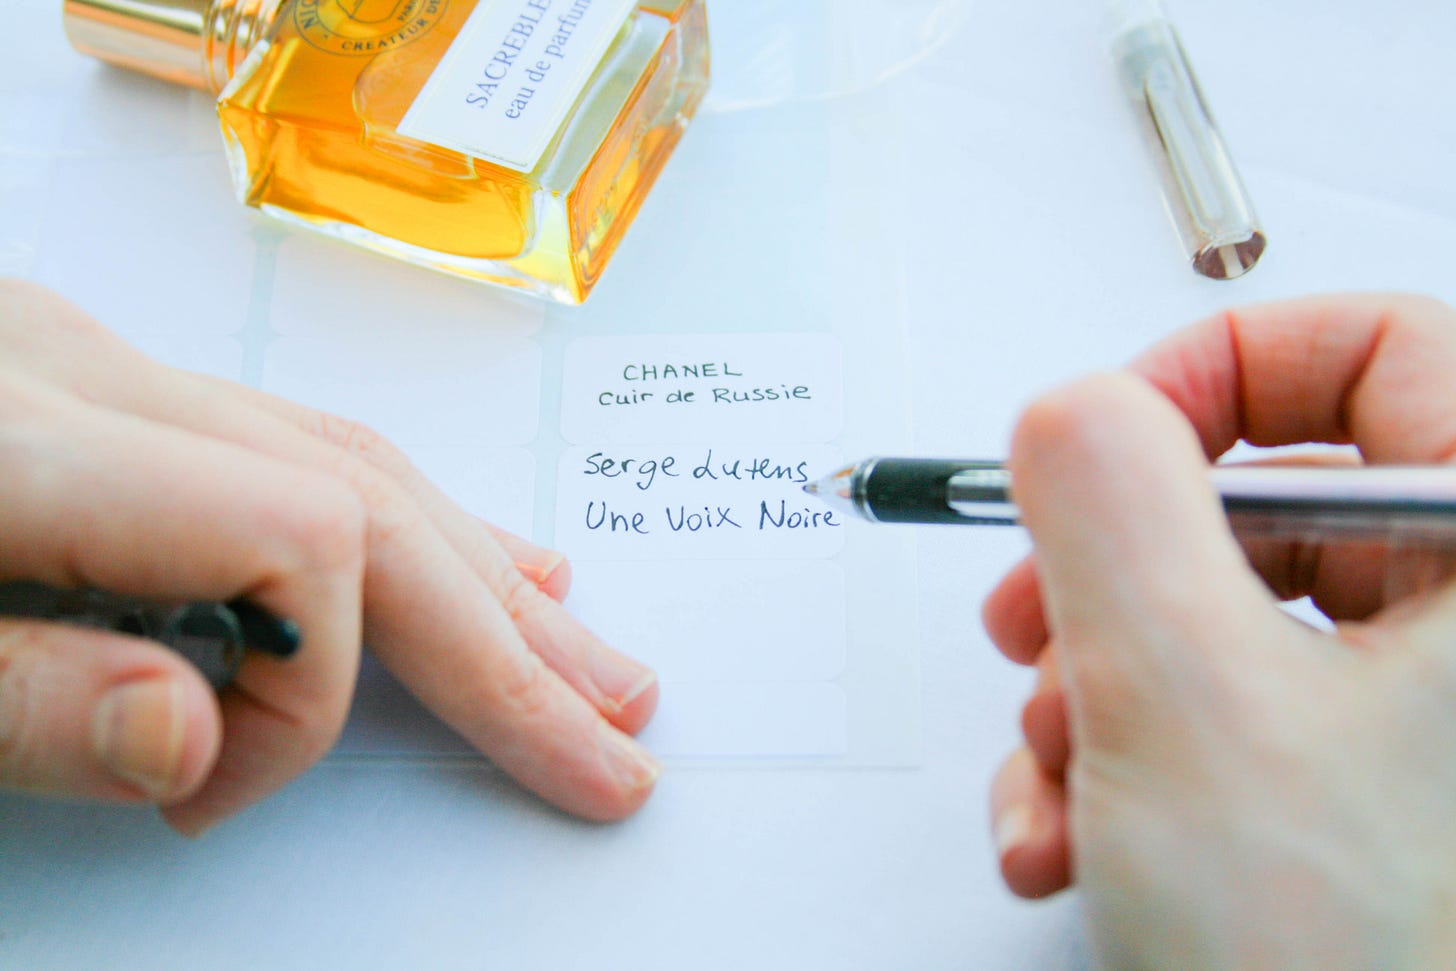 CREATEUR DE
SACREBLE
eau de parfum
CHANEL
Cuir de Russie
Serge Lutens
Une Voix Noire